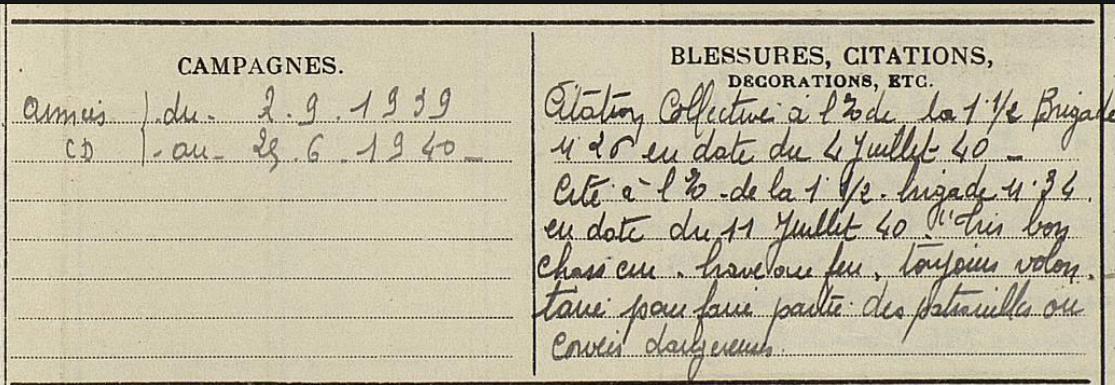 CAMPAGNES.
Armées } du - 2.9.1939
CD } - au - 25.6.1940 -
BLESSURES, CITATIONS,
DECORATIONS, ETC.
Citation Collective à l'% de la 1° 1/2 Brigade
n° 26 en date du 4 Juillet 40 -
Cité à l'% de la 1° 1/2 brigade n° 34
en date du 11 Juillet 40. "Très bon
chasseur. brave au feu, toujours volon
taire pour faire partie des patrouilles ou
corvées dangereuses.